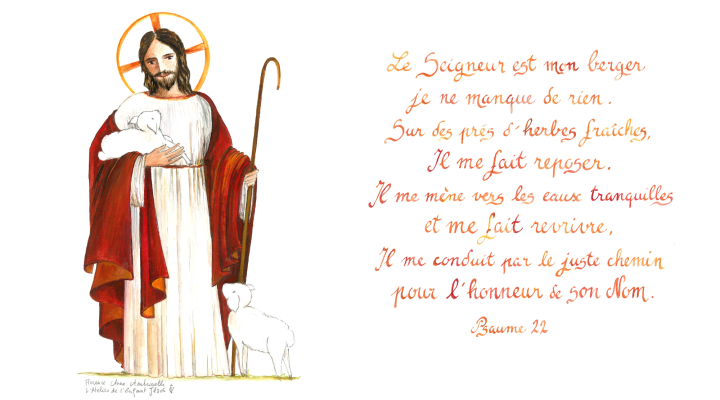 Le Seigneur est mon berger
je ne manque de rien.
Sur des prés d'herbes fraîches,
Il me fait reposer.
Il me mène vers les eaux tranquilles
et me fait revivre,
Il me conduit par le juste chemin
pour l'honneur de son Nom.
Psaume 22
Anne
L'Atelier de l'Enfant Jésus